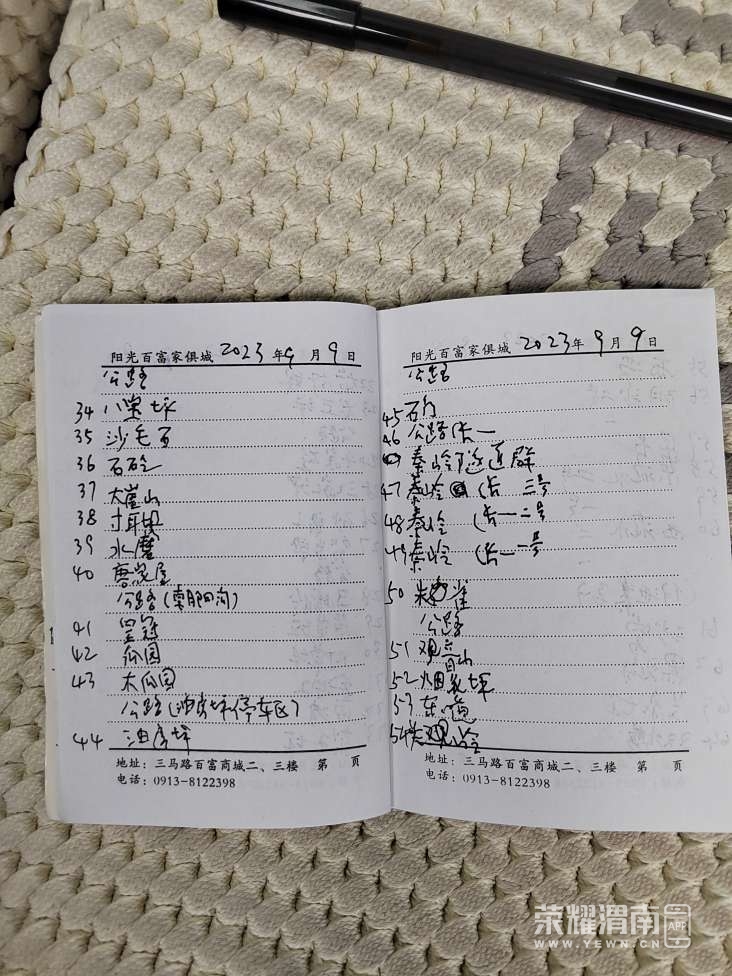 阳光百富家俱城 2023年9月9日
公路
34 八里坪
35 沙毛石
36 石砭
37 大崖山
38
39 水磨
40 唐家屋
公路(朝阳沟)
41 皇冠
42 瓜园
43 木瓜园
公路(油房坪停车区)
44 油房坪
地址：三马路百富商城二、三楼 第 页
电话：0913-8122398
阳光百富家俱城 2023年9月9日
公路
45 石门
46 公路 一
秦岭隧道群
47 秦岭 ( 三号
48 秦岭 ( 一二号
49 秦岭 ( 一一号
50 雀
公路
51 观音山
52 坪
53
54
地址：三马路百富商城二、三楼 第 页
电话：0913-8122398
荣耀渭南 APP
WWW.YEWN.CN